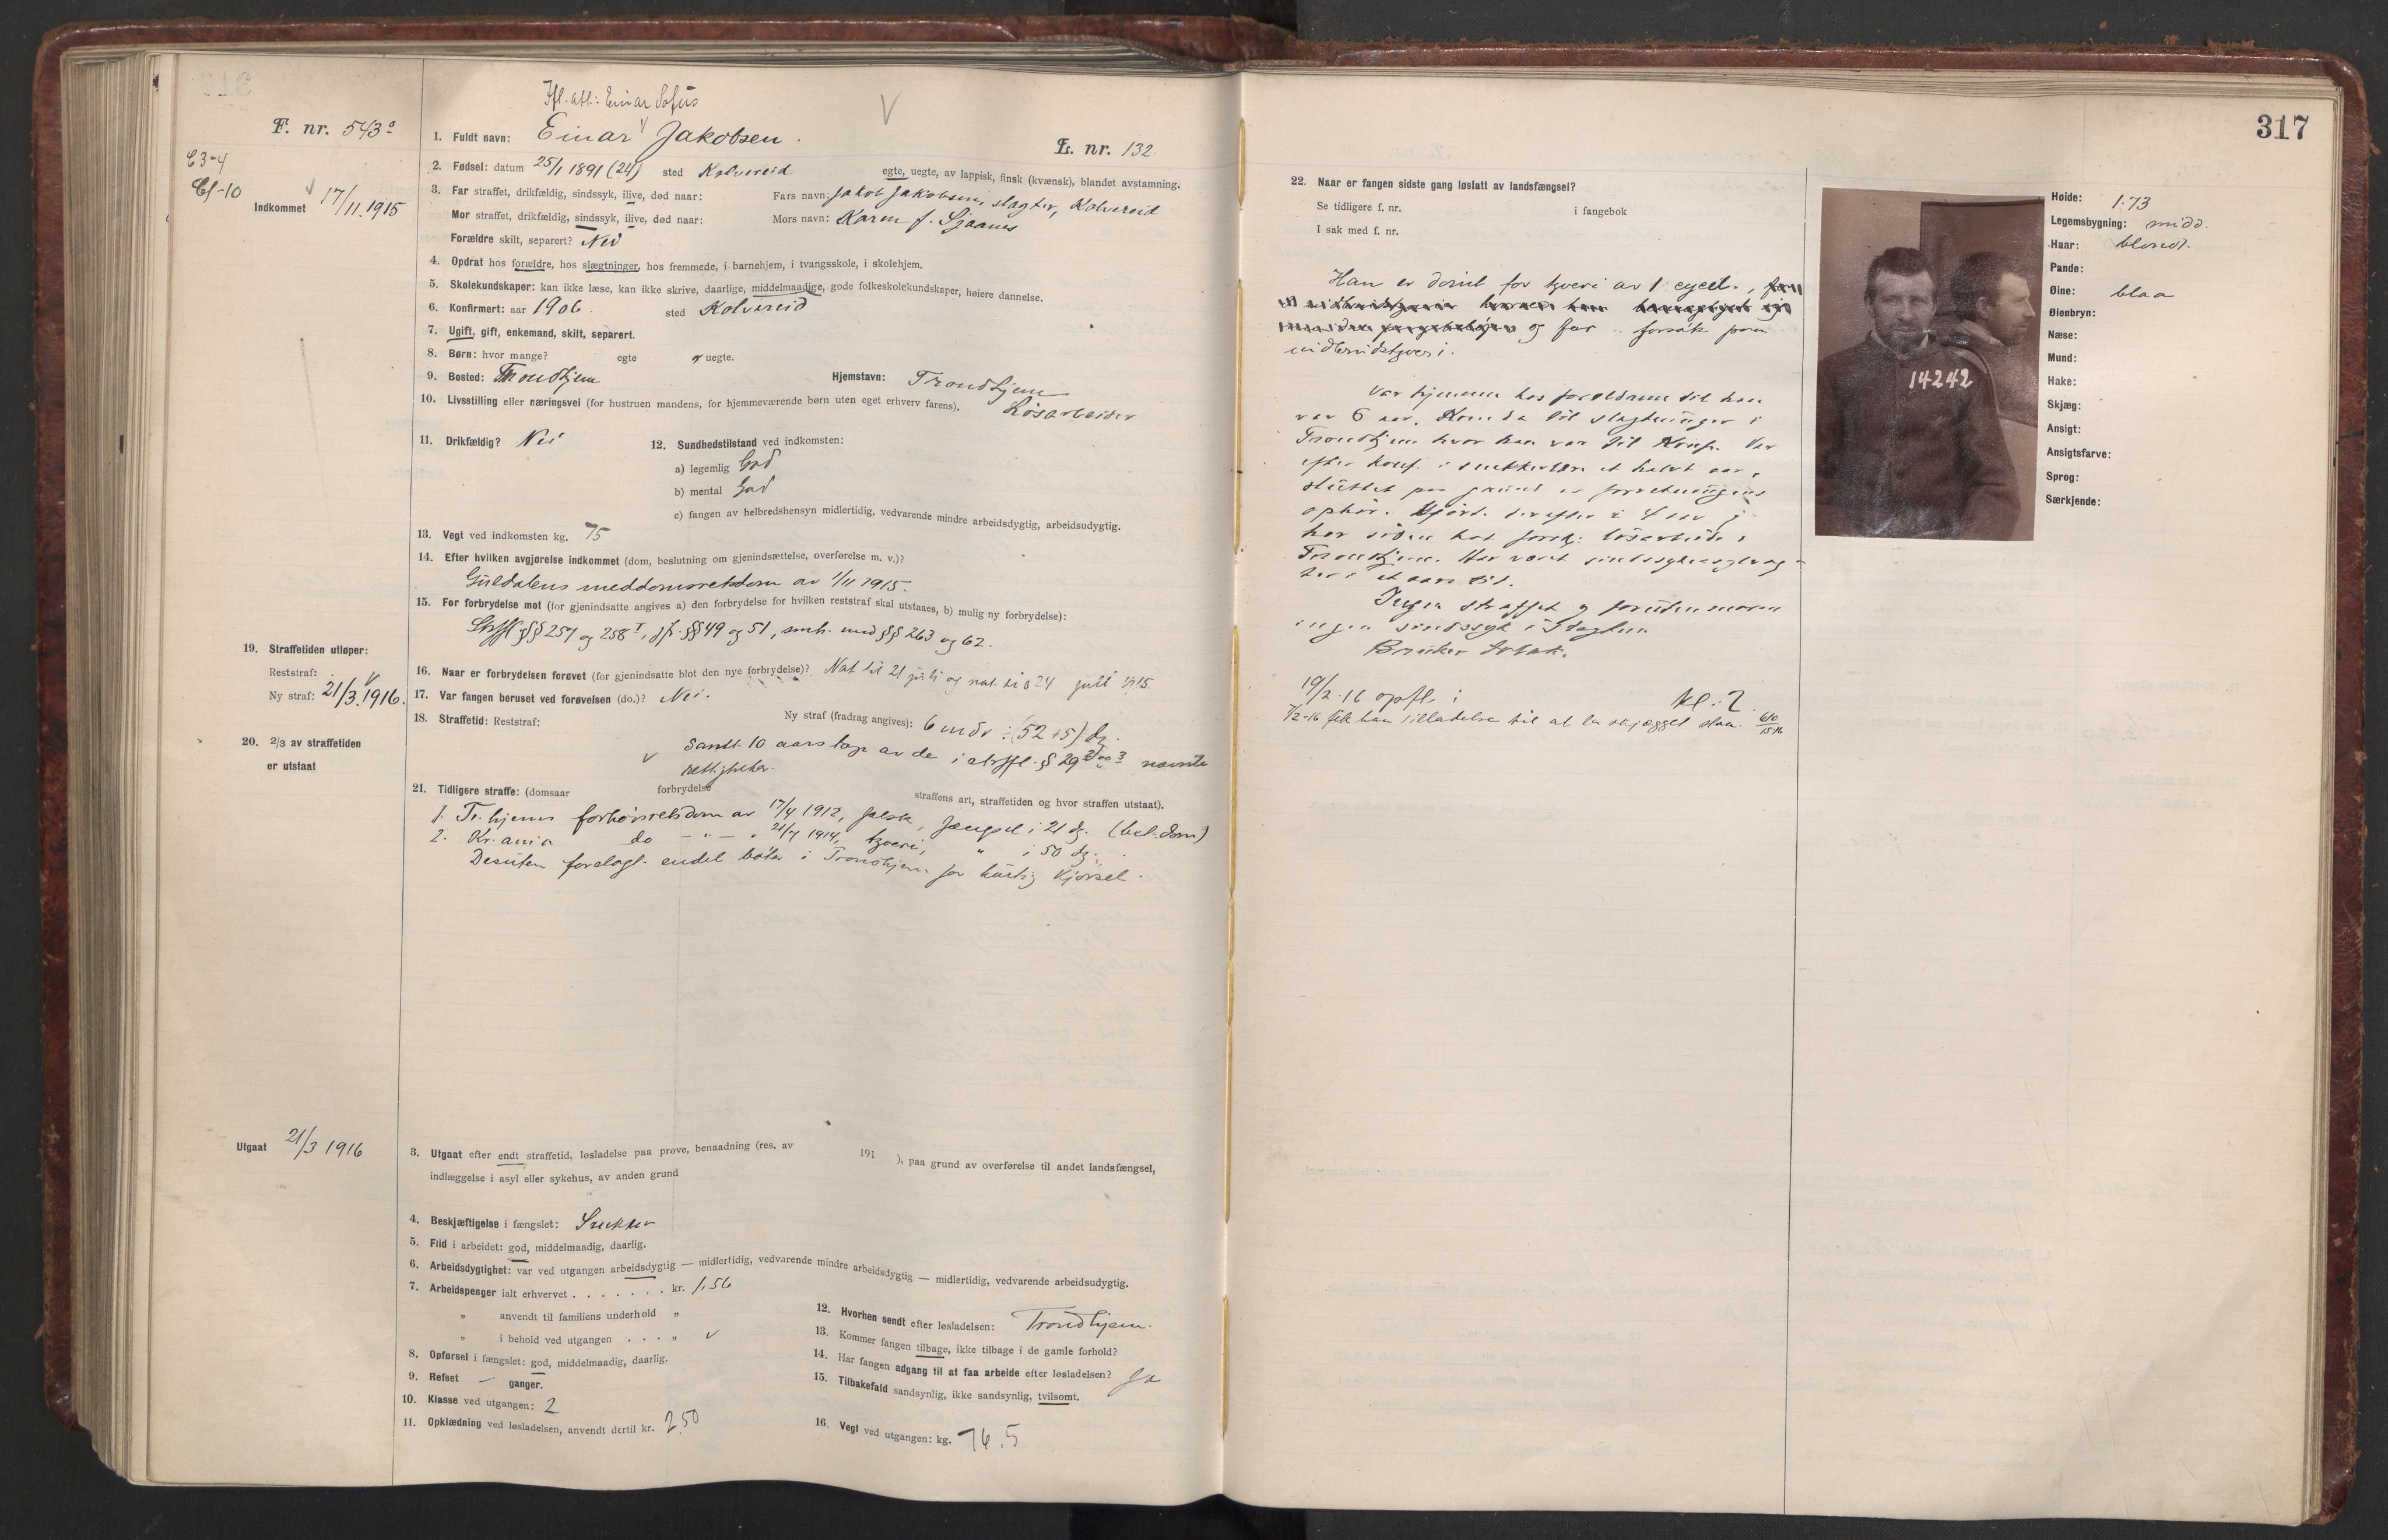 Ifl. att.: Einar Sofus
F. nr. 543a
C3-4
Cf-10
Indkommet 17/11.1915
1. Fuldt navn: Einar Jakobsen.
L. nr. 132
2. Fødsel: datum 25/1 1891 (24) sted Kolvereid egte, uegte, av lappisk, finsk (kvænsk), blandet avstamning.
3. Far straffet, drikfældig, sindssyk, ilive, død naar: Fars navn: Jakob Jakobsen, slagter, Kolvereid
Mor straffet, drikfældig, sindssyk, ilive, død naar: Mors navn: Karen f.
Forældre skilt, separert? Nei
4. Opdrat hos forældre, hos slægtninger, hos fremmede, i barnehjem, i tvangsskole, i skolehjem.
5. Skolekundskaper: kan ikke læse, kan ikke skrive, daarlige, middelmaadige, gode folkeskolekundskaper, høiere dannelse.
6. Konfirmert: aar 1906. sted Kolvereid
7. Ugift, gift, enkemand, skilt, separert.
8. Børn: hvor mange? egte uegte.
9. Bosted: Trondhjem Hjemstavn: Trondhjem
10. Livsstilling eller næringsvei (for hustruen mandens, for hjemmeværende børn uten eget erhverv farens). Løsarbeider
11. Drikfældig? Nei 12. Sundhedstilstand ved indkomsten:
a) legemlig God
b) mental God
c) fangen av helbredshensyn midlertidig, vedvarende mindre arbeidsdygtig, arbeidsudygtig.
13. Vegt ved indkomsten kg. 75
14. Efter hvilken avgjørelse indkommet (dom, beslutning om gjenindsættelse, overførelse m. v.)?
Guldalens meddomsretsdom av 1/11 1915.
15. For forbrydelse mot (for gjenindsatte angives a) den forbrydelse for hvilken reststraf skal utstaaes, b) mulig ny forbrydelse):
Strffl §§ 257 og 258 I, jfr. §§ 49 og 51, smh. med §§ 263 og 62.
19. Straffetiden utløper:
Reststraf:
Ny straf: 21/3.1916.
16. Naar er forbrydelsen forøvet (for gjenindsatte blot den nye forbrydelse)? Nat til 21 juli og nat til 24 juli 1915.
17. Var fangen beruset ved forøvelsen (do.)? Nei.
18. Straffetid: Reststraf: Ny straf (fradrag angives): 6 mdr ÷ (52+5) dg.
20. 2/3 av straffetiden
er utstaat
Samt 10 aars tap av de i strffl. § 29 nævnte
rettigheter.
21. Tidligere straffe: (domsaar forbrydelse straffens art, straffetiden og hvor straffen utstaat).
1. Tr.hjems forhørsretsdom av 17/4 1912, falsk, fængsel i 21 dg. (bet. dom)
2. Kr.ania do - " - " 21/4 1914, tyveri, " i 50 dg.
Desuten forelagt endel bøter i Trondhjem for hurtig kjørsel.
Utgaat 21/3 1916
3. Utgaat efter endt straffetid, løsladelse paa prøve, benaadning (res. av 191 ), paa grund av overførelse til andet landsfængsel,
indlæggelse i asyl eller sykehus, av anden grund
4. Beskjæftigelse i fængslet: Snekker
5. Flid i arbeidet: god, middelmaadig, daarlig.
6. Arbeidsdygtighet: var ved utgangen arbeidsdygtig — midlertidig, vedvarende mindre arbeidsdygtig — midlertidig, vedvarende arbeidsudygtig.
7. Arbeidspenger ialt erhvervet . . . . . . . kr. 1,56
" anvendt til familiens underhold "
" i behold ved utgangen . . . "
8. Opførsel i fængslet: god, middelmaadig, daarlig.
9. Refset — ganger.
10. Klasse ved utgangen: 2
11. Opklædning ved løsladelsen, anvendt dertil kr. 2,50
12. Hvorhen sendt efter løsladelsen: Trondhjem.
13. Kommer fangen tilbage, ikke tilbage i de gamle forhold?
14. Har fangen adgang til at faa arbeide efter løsladelsen? Ja
15. Tilbakefald sandsynlig, ikke sandsynlig, tvilsomt.
16. Vegt ved utgangen: kg. 76,5
317
22. Naar er fangen sidste gang løslatt av landsfængsel?
Se tidligere f. nr. i fangebok
I sak med f. nr.
Han er dømt for tyveri av 1 cycel.,
og for forsøk paa
indbrudstyveri.
Var hjemme hos forældrene til han
var 6 aar. Kom da til slægtninger i
Trondhjem hvor han var til Konf. Var
efter konf. i snekkerlære et halvt aar,
sluttet paa grund av forretningens
ophør. Kjørte derefter i 4 aar
har siden hat forskj. løsarbeide i
Trondhjem. Har været sindssykeasylvog-
ter i et aars tid.
Ingen straffet og foruten moren
ingen sindssyk i slegten.
Bruker tobak.
19/2-16 opfl. i kl. 2.
7/2-16 fik han tilladelse til at la skjægget staa. 610/15-16
14242
Høide: 1.73
Legemsbygning: midd.
Haar: blond.
Pande:
Øine: blaa
Øienbryn:
Næse:
Mund:
Hake:
Skjæg:
Ansigt:
Ansigtsfarve:
Sprog:
Særkjende: